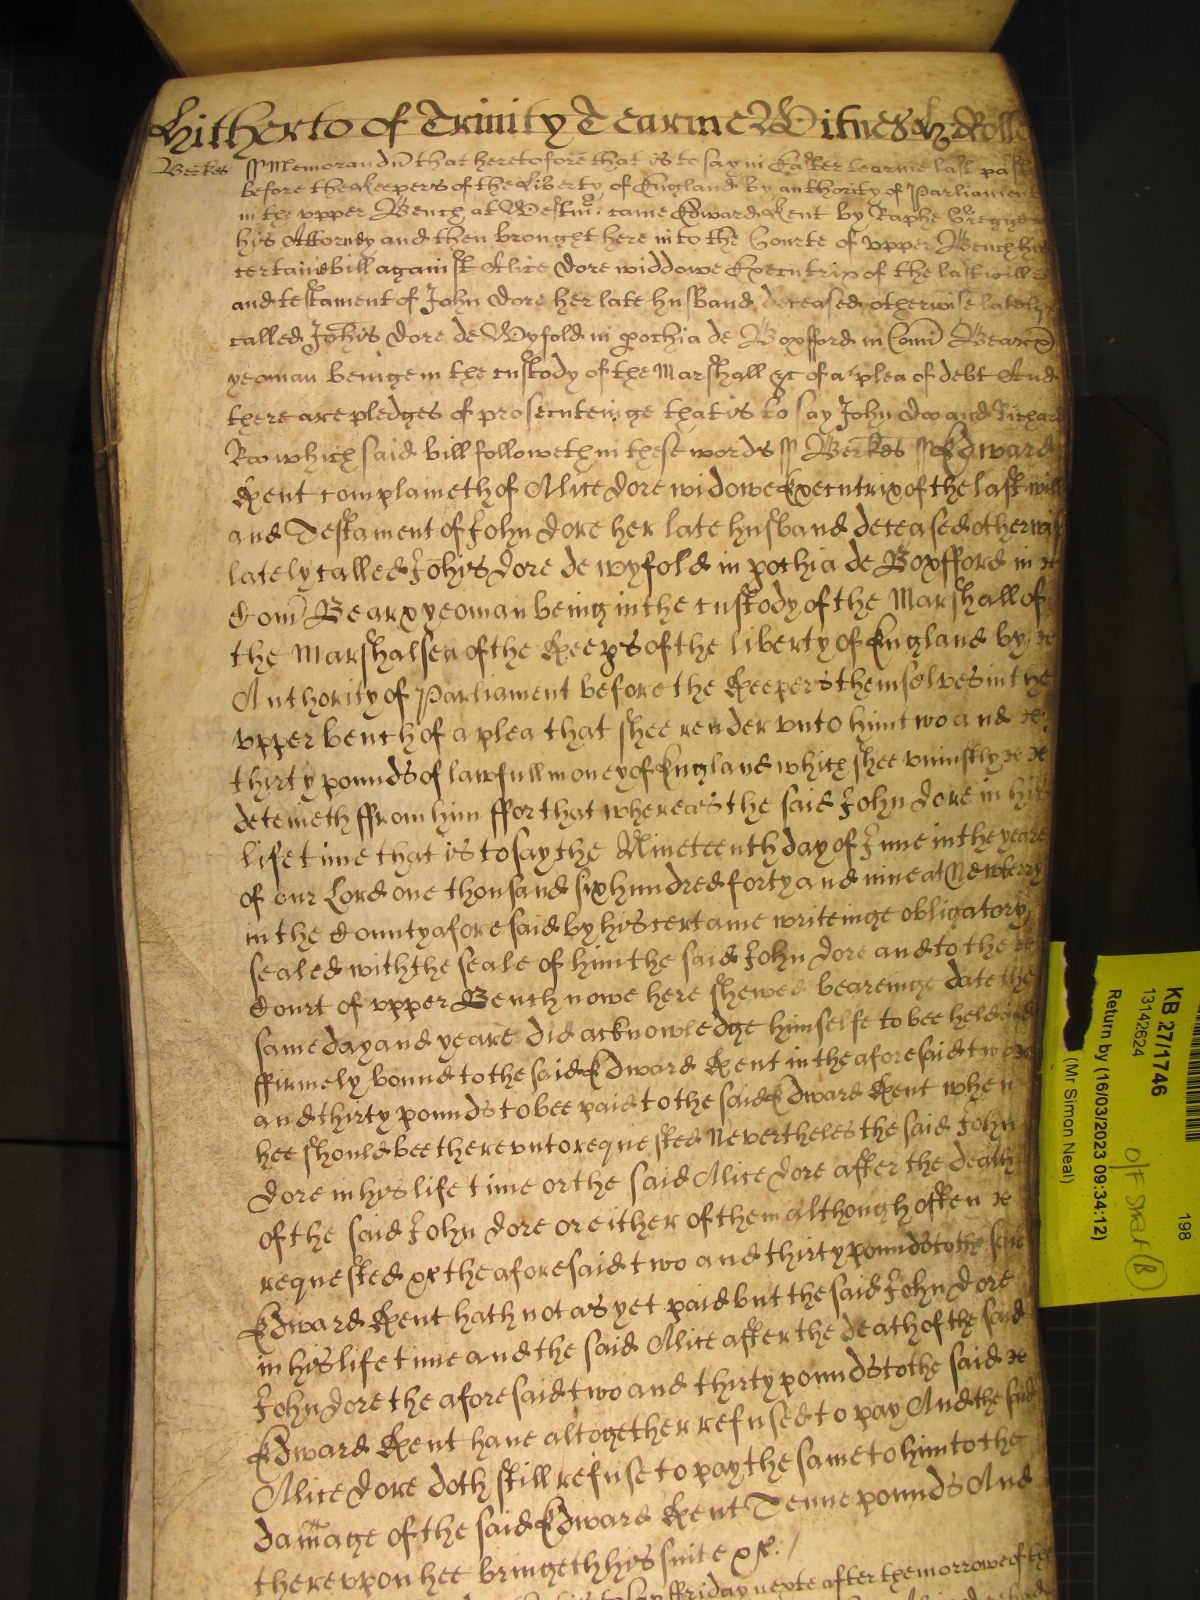 Hitherto of Trinity Tearme Witnes the Rolle
Berkes ss Memorandū that heretofore that is to say in Easter tearme last past
before the Keepers of the Liberty of England by authority of Parliament
in the vpper Bench at Westm̄ came Edward Kent by Raphe
his Attorney and then brought here into the Courte of vpper Bench his
certaine bill against Alice Dore widdowe Executrix of the last will
and testament of John Dore her late husband deceased otherwise lately
called Johis Dore de Wyfold in pochia de Boxfford in Com̄
yeoman beinge in the custody of the Marshall &c of a plea of debt And
there are pledges of prosecuteinge that is to say John Doo and Richard
Roo which said bill followeth in these words ss Berkes ss Edward
Kent complaineth of Alice Dore widowe Executrix of the last will
and Testament of John Dore her late husband deceased otherwise
lately called Johis Dore de wyfold in pochia de Boxfford in
Com̄ Bearx yeoman being in the custody of the Marshall of
the Marshalsea of the Keeps of the liberty of England by
Authority of Parliament before the Keepers themselves in the
vpper bench of a plea that shee render vnto him two and
thirty pounds of lawfull money of England which shee vniustly
deteineth ffrom him ffor that whereas the said John Dore in his
life time that is to say the Nineteenth day of June in the yeare
of our Lord one thousand six hundred forty and nine at Newberry
in the County aforesaid by his certaine writeinge obligatory
sealed with the seale of him the said John Dore and to the
Court of vpper Bench nowe here shewed beareinge date the
same day and yeare did acknowledge himselfe to bee held and
ffirmely bound to the said Edward Kent in the aforesaid two
and thirty pounds to bee paid to the said Edward Kent when
hee should bee therevnto requested Nevertheles the said John
Dore in his life time or the said Alice Dore after the death
of the said John Dore or either of them although often
requested &c the aforesaid two and thirty pounds to the said
Edward Kent hath not as yet paid but the said John Dore
in his life time and the said Alice after the death of the said
John Dore the aforesaid two and thirty pounds to the said
Edward Kent have altogether refused to pay And the said
Alice Dore doth still refuse to pay the same to him to the
damage of the said Edward Kent Tenne pounds And
therevpon hee bringeth his suite &c
to say ffriday nexte after the morrowe of the
KB 27/1746
13142624
198
Return by (16/03/2023 09:34:12)
(Mr Simon Neal)